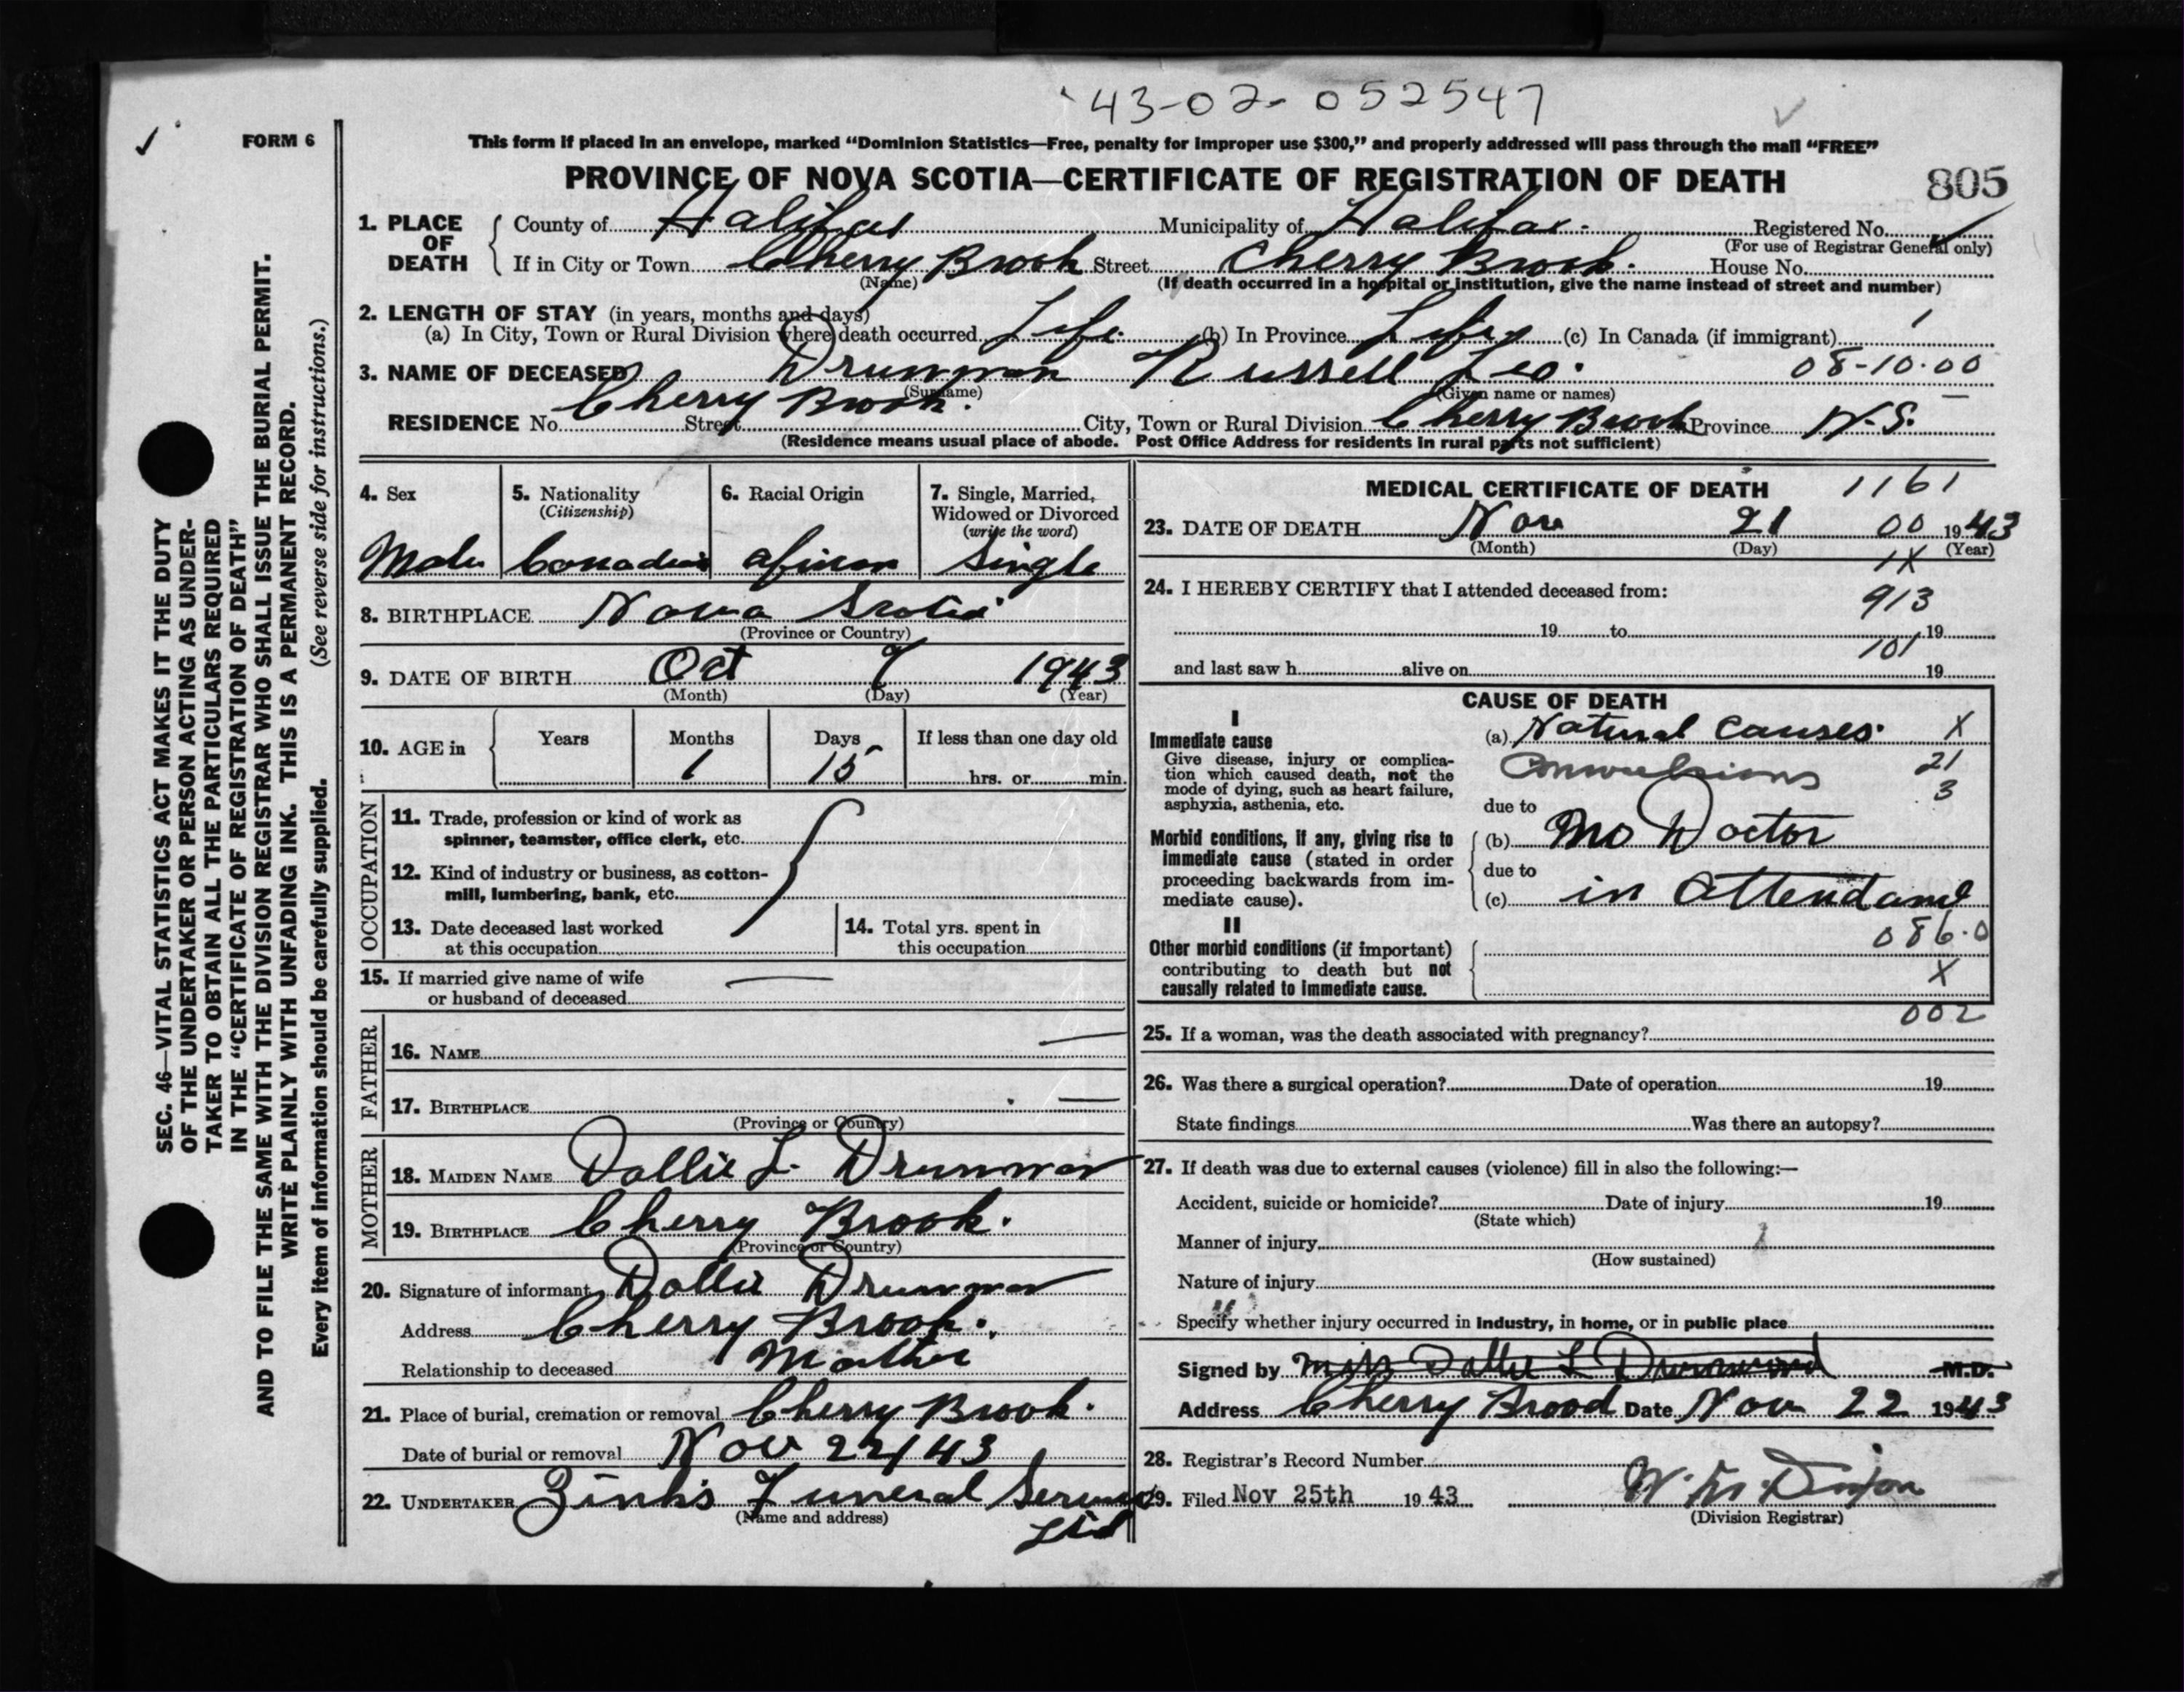 43-02-052547
FORM 6
This form if placed in an envelope, marked “Dominion Statistics—Free, penalty for improper use $300,” and properly addressed will pass through the mail “FREE”
PROVINCE OF NOVA SCOTIA—CERTIFICATE OF REGISTRATION OF DEATH 805
1. PLACE OF DEATH
County of Halifax Municipality of Halifax. Registered No.
(For use of Registrar General only)
If in City or Town Cherry Brook Street Cherry Brook. House No.
(Name) (If death occurred in a hospital or institution, give the name instead of street and number)
2. LENGTH OF STAY (in years, months and days)
(a) In City, Town or Rural Division where death occurred Life. (b) In Province Life (c) In Canada (if immigrant)
3. NAME OF DECEASED Drumman Russell Leo. 08-10-00
(Surname) (Given name or names)
RESIDENCE No. Cherry Brook. Street City, Town or Rural Division Cherry Brook Province N.S.
(Residence means usual place of abode. Post Office Address for residents in rural parts not sufficient)
4. Sex
Male
5. Nationality
(Citizenship)
6. Racial Origin
7. Single, Married, Widowed or Divorced
(write the word)
Single
8. BIRTHPLACE Nova Scotia
(Province or Country)
9. DATE OF BIRTH Oct 7 1943
(Month) (Day) (Year)
10. AGE in
Years Months Days If less than one day old
1 15 hrs. or min.
OCCUPATION
11. Trade, profession or kind of work as
spinner, teamster, office clerk, etc.
12. Kind of industry or business, as cotton-
mill, lumbering, bank, etc.
13. Date deceased last worked
at this occupation
14. Total yrs. spent in
this occupation
15. If married give name of wife
or husband of deceased —
FATHER
16. NAME —
17. BIRTHPLACE —
(Province or Country)
MOTHER
18. MAIDEN NAME Dollie L. Drumman
19. BIRTHPLACE Cherry Brook.
(Province or Country)
20. Signature of informant Dollie Drumman
Address Cherry Brook.
Relationship to deceased Mother
21. Place of burial, cremation or removal Cherry Brook.
Date of burial or removal Nov 22/43
22. UNDERTAKER Zink's Funeral Service
Ltd
(Name and address)
MEDICAL CERTIFICATE OF DEATH 1161
23. DATE OF DEATH Nov 21 00 1943
(Month) (Day) (Year)
1X
24. I HEREBY CERTIFY that I attended deceased from: 913
19 to 19
101
and last saw h alive on 19
CAUSE OF DEATH
I
Immediate cause
Give disease, injury or complica-
tion which caused death, not the
mode of dying, such as heart failure,
asphyxia, asthenia, etc.
(a) Natural Causes. X
Convulsions 21
3
due to
Morbid conditions, if any, giving rise to
immediate cause (stated in order
proceeding backwards from im-
mediate cause).
(b) No Doctor
due to
(c) in attendance
086.0
II
Other morbid conditions (if important)
contributing to death but not
causally related to immediate cause.
X
002
25. If a woman, was the death associated with pregnancy?
26. Was there a surgical operation? Date of operation 19
State findings Was there an autopsy?
27. If death was due to external causes (violence) fill in also the following:—
Accident, suicide or homicide? Date of injury 19
(State which)
Manner of injury
(How sustained)
Nature of injury
Specify whether injury occurred in industry, in home, or in public place
Signed by Miss Dollie L Drummond M.D.
Address Cherry Brood Date Nov 22 1943
28. Registrar's Record Number
29. Filed Nov 25th 1943
(Division Registrar)
SEC. 46—VITAL STATISTICS ACT MAKES IT THE DUTY
OF THE UNDERTAKER OR PERSON ACTING AS UNDER-
TAKER TO OBTAIN ALL THE PARTICULARS REQUIRED
IN THE “CERTIFICATE OF REGISTRATION OF DEATH”
AND TO FILE THE SAME WITH THE DIVISION REGISTRAR WHO SHALL ISSUE THE BURIAL PERMIT.
WRITE PLAINLY WITH UNFADING INK. THIS IS A PERMANENT RECORD.
Every item of information should be carefully supplied. (See reverse side for instructions.)